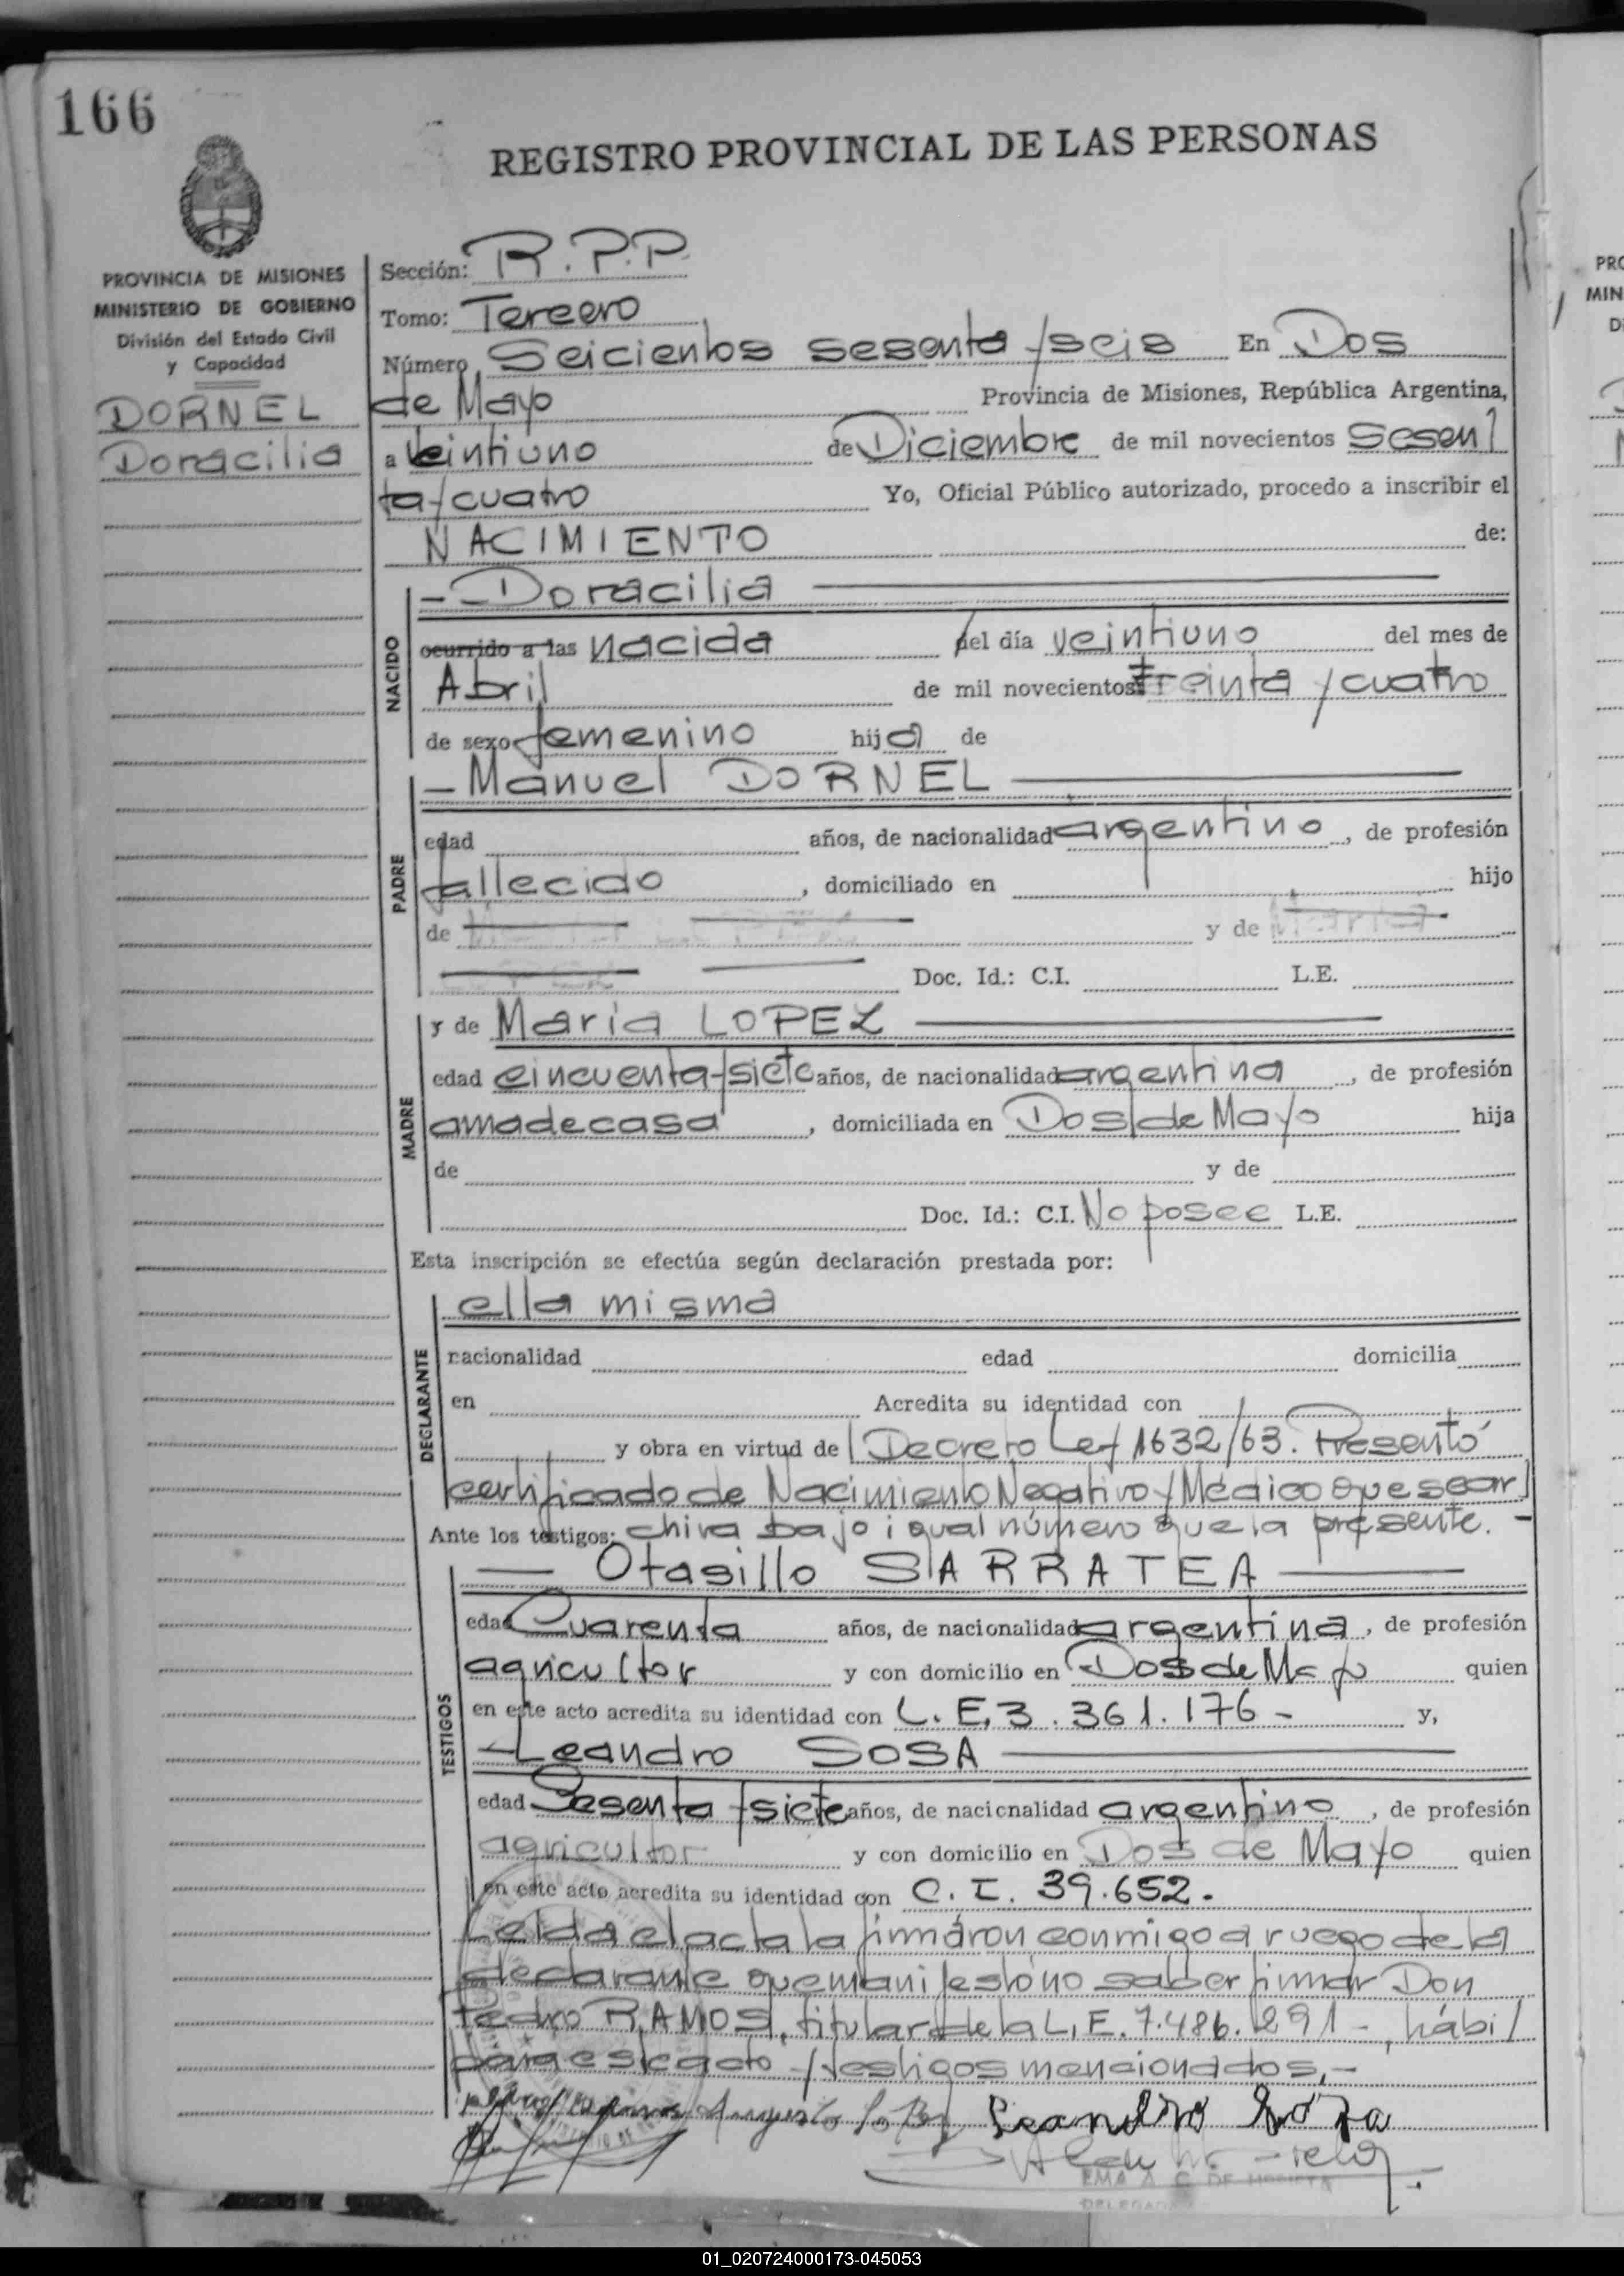 166
REGISTRO PROVINCIAL DE LAS PERSONAS
PROVINCIA DE MISIONES
MINISTERIO DE GOBIERNO
División del Estado Civil
y Capacidad
DORNEL
Doracilia
Sección: R.P.P.
Tomo: Tercero
Número Seicientos sesenta y seis En Dos
de Mayo Provincia de Misiones, República Argentina,
a Veintiuno de Diciembre de mil novecientos Sesen
ta y cuatro Yo, Oficial Público autorizado, procedo a inscribir el
NACIMIENTO de:
NACIDO
- - Doracilia
ocurrido a las nacida del día veintiuno del mes de
Abril de mil novecientos treinta y cuatro
de sexo femenino hija de
- Manuel DORNEL
PADRE
edad años, de nacionalidad argentino, de profesión
fallecido, domiciliado en hijo
de y de
Doc. Id.: C.I. L.E.
MADRE
y de Maria LOPEZ
edad cincuenta y siete años, de nacionalidad argentina, de profesión
ama de casa, domiciliada en Dos de Mayo hija
de y de
Doc. Id.: C.I. No posee L.E.
Esta inscripción se efectúa según declaración prestada por:
DECLARANTE
ella misma
nacionalidad edad domicilia
en Acredita su identidad con
y obra en virtud de Decreto Ley 1632/63. Presentó
certificado de Nacimiento Negativo y Médico que se ar
Ante los testigos: chiva bajo igual número que la presente. -
TESTIGOS
Otasillo SARRATEA
edad Cuarenta años, de nacionalidad argentina, de profesión
agricultor y con domicilio en Dos de Mayo quien
en este acto acredita su identidad con L.E. 3.361.176 - y,
- Leandro SOSA
edad Sesenta y siete años, de nacionalidad argentino, de profesión
agricultor y con domicilio en Dos de Mayo quien
en este acto acredita su identidad con C.I. 39.652.
Leida el acta la firmáron conmigo a ruego de la
declarante que manifestó no saber firmar Don
Pedro RAMOS, titular de la L.E. 7.486.291 -, hábil
para este acto y testigos mencionados.-
Leandro Soza
EMA A. C. DE
01_020724000173-045053